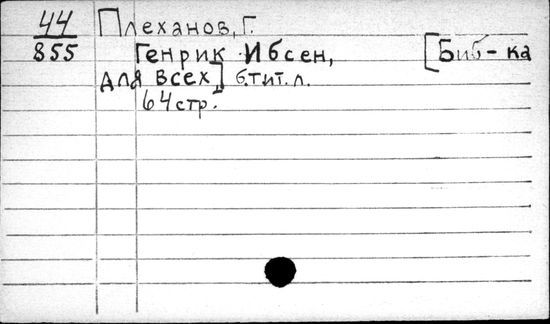 44 Плеханов, Г.
855 Генрик Ибсен, [Биб-ка
для всех] б.тит.л.
64 стр.